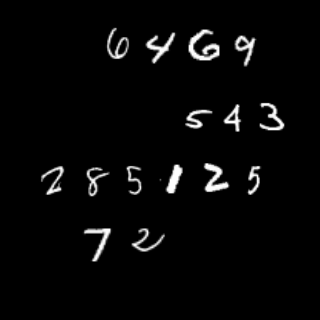 6469
543
285125
72